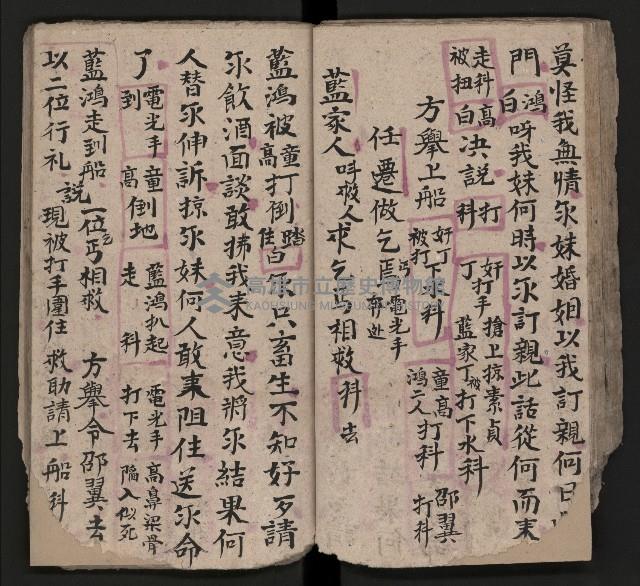 莫怪我無情尔妹婚姻以我訂親何日
門鴻白呀我妹何時以尔訂親此話從何而来
走科高被扭白决說打科 奸打手搶上掠素貞
丁藍家丁被打下水科 邵翼
方舉上船奸丁下科被打 童高打科
鴻二人打科
任遷做乞焉 電光手
藍家人呌救人求乞丐相救科去
藍鴻被童高打倒踏住白尔只畜生不知好歹請
尔飲酒面談敢拂我来意我將尔結果何
人替尔伸訴掠尔妹何人敢来阻住送尔命
了電光手到童高倒地藍鴻扒起走科電光手打下去高鼻梁骨陷入似死
藍鴻走到船說一位乞丐相救 方舉令邵翼去
以二位行礼 現被打手圍住救助請上船科
高雄市立歷史博物館
KAOHSIUNG MUSEUM OF HISTORY